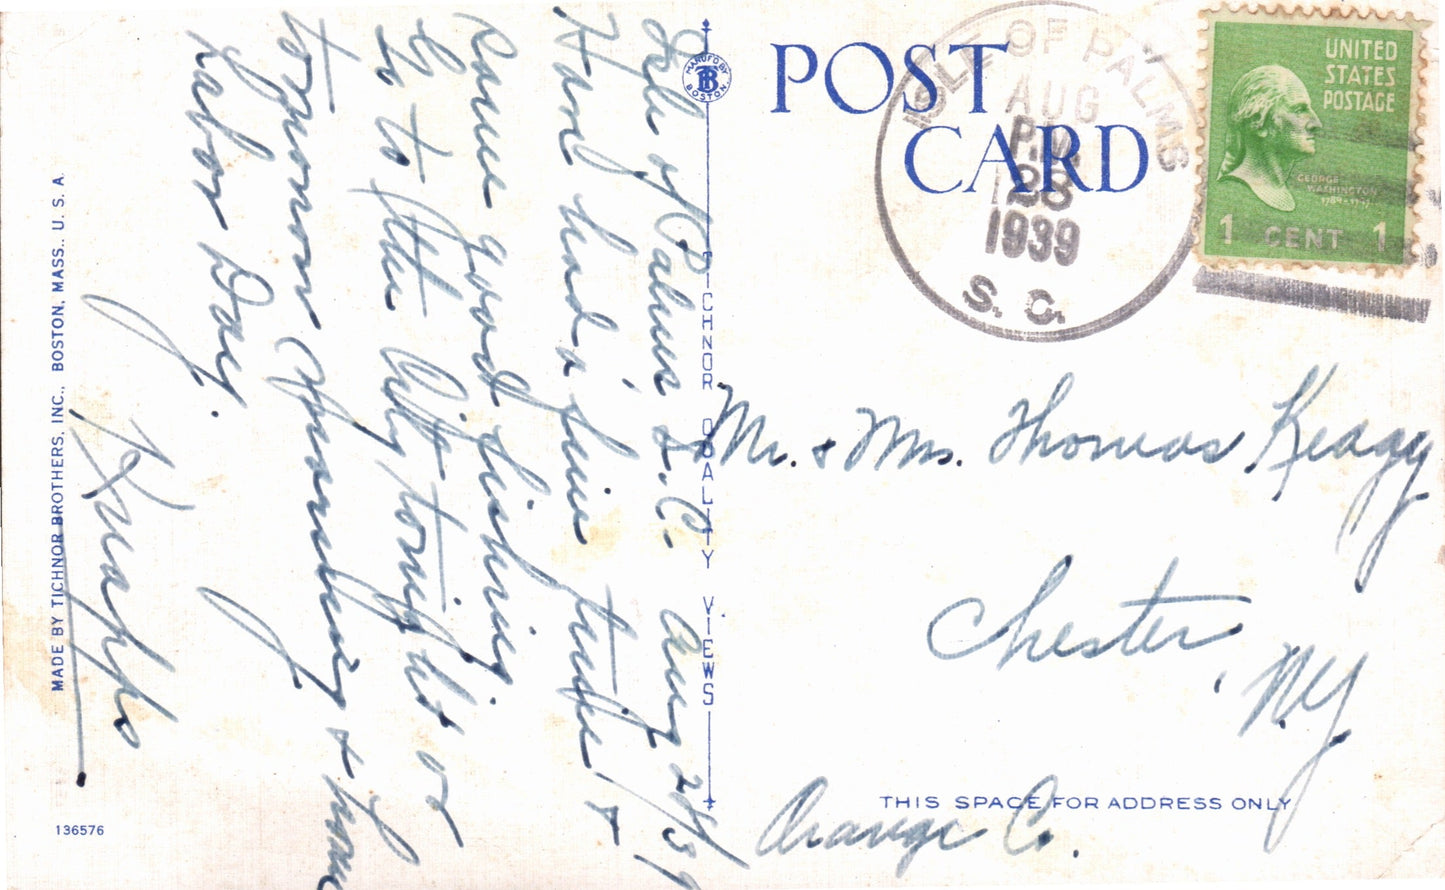 Isle of Palms S.C. Aug 28/39
Have had a fine time &
Rare good fishing.
Go to the City tonight or
tomorrow morning & home
Labor Day.
Knapps
MANUF'D BY
TB
BOSTON.
TICHNOR QUALITY VIEWS
POST
CARD
ISLE OF PALMS
AUG
P.M.
28
1939
S. C.
UNITED
STATES
POSTAGE
GEORGE
WASHINGTON
1789-1797
1 CENT 1
Mr. & Mrs. Thomas Keagy
Chester, N.Y
Orange Co.
THIS SPACE FOR ADDRESS ONLY
MADE BY TICHNOR BROTHERS, INC., BOSTON, MASS., U. S. A.
136576